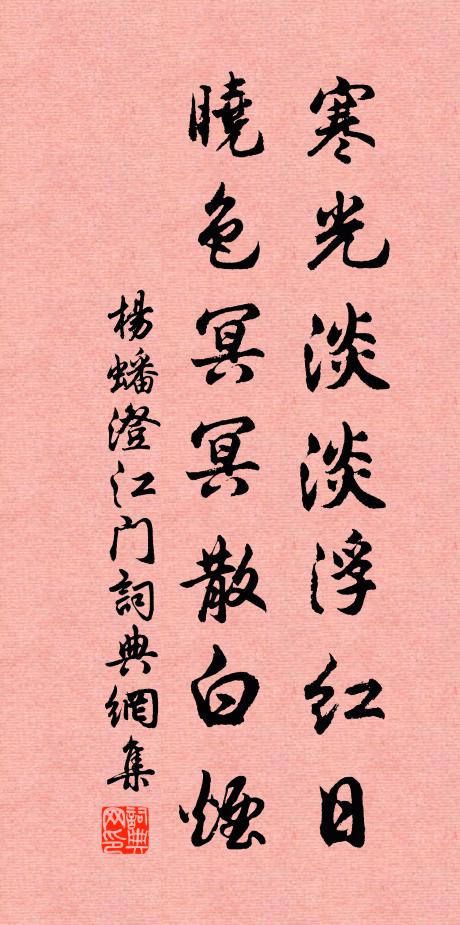 寒光淡淡浮紅日
曉色冥冥散白煙
楊蟠澄江門詞典網集
詞典網印